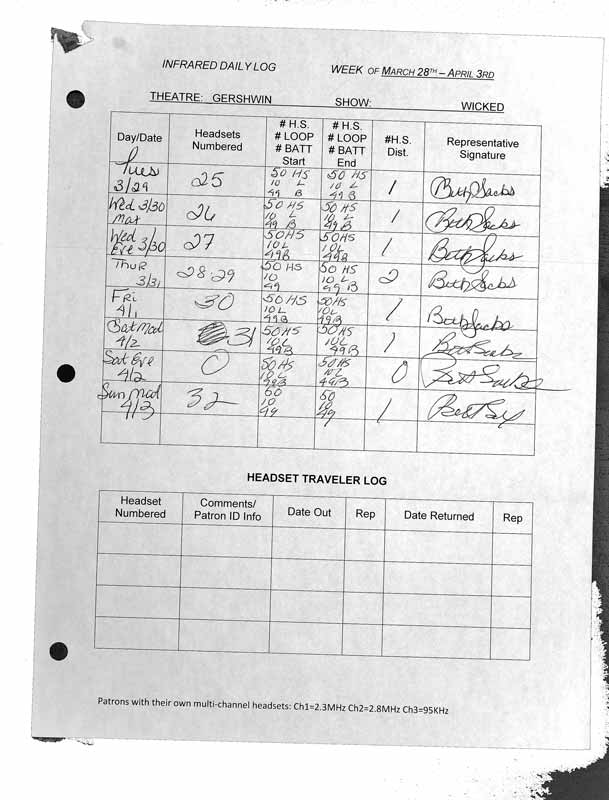 INFRARED DAILY LOG WEEK OF MARCH 28TH – APRIL 3RD
THEATRE: GERSHWIN SHOW: WICKED
Day/Date Headsets Numbered # H.S. # LOOP # BATT Start # H.S. # LOOP # BATT End #H.S. Dist. Representative Signature
Tues 3/29 25 50 HS 10 L 49 B 50 HS 10 L 49 B 1 Beth Sacks
Wed 3/30 Mat 26 50 HS 10 L 49 B 50 HS 10 L 49 B 1 Beth Sacks
Wed Eve 3/30 27 50 HS 10 L 49 B 50 HS 10 L 49 B 1 Beth Sacks
Thur 3/31 28-29 50 HS 10 49 50 HS 10 L 49 B 2 Beth Sacks
Fri 4/1 30 50 HS 10 L 49 B 50 HS 10 L 49 B 1 Beth Sacks
Sat Mat 4/2 31 50 HS 10 L 49 B 50 HS 10 L 49 B 1 Beth Sacks
Sat Eve 4/2 0 50 HS 10 L 49 B 50 HS 10 L 49 B 0 Beth Sacks
Sun Mat 4/3 32 50 10 49 50 10 49 1
HEADSET TRAVELER LOG
Headset Numbered Comments/ Patron ID Info Date Out Rep Date Returned Rep
Patrons with their own multi-channel headsets: Ch1=2.3MHz Ch2=2.8MHz Ch3=95KHz